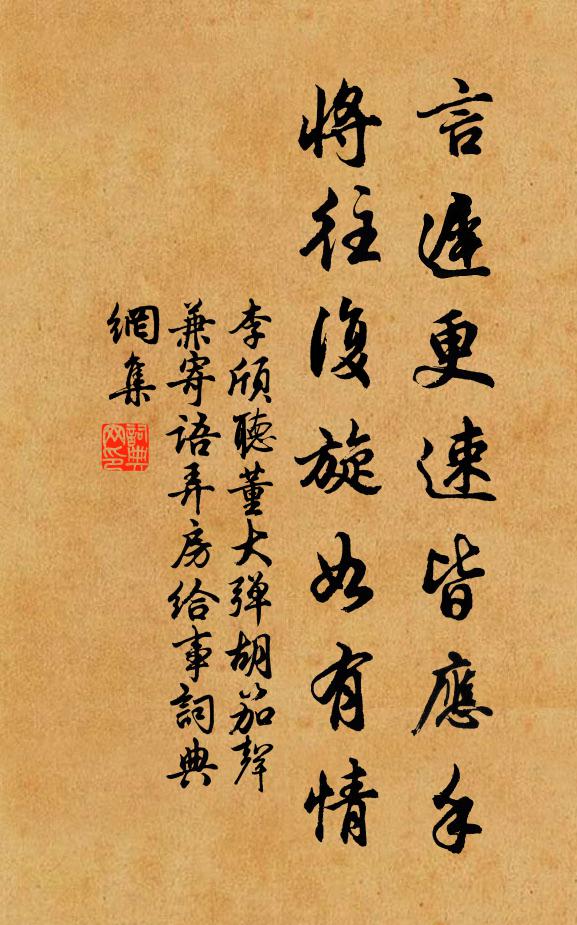 言遲更速皆應手
將往復旋如有情
李頎聽董大弹胡笳聲
兼寄語弄房給事詞典
網集
詞典
网印